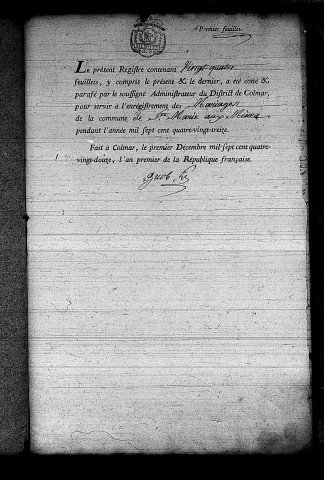 Premier feuillet.
LE présent Registre contenant Vingt quatre
feuillets, y compris le présent & le dernier, a été coté &
parafé par le soussigné Administrateur du District de Colmar,
pour servir à l'enrégistrement des Mariages
de la commune de Ste Marie aux Mines
pendant l'année mil sept cent quatre-vingt-treize.
Fait à Colmar, le premier Décembre mil sept cent quatre-
vingt-douze, l'an premier de la République française.